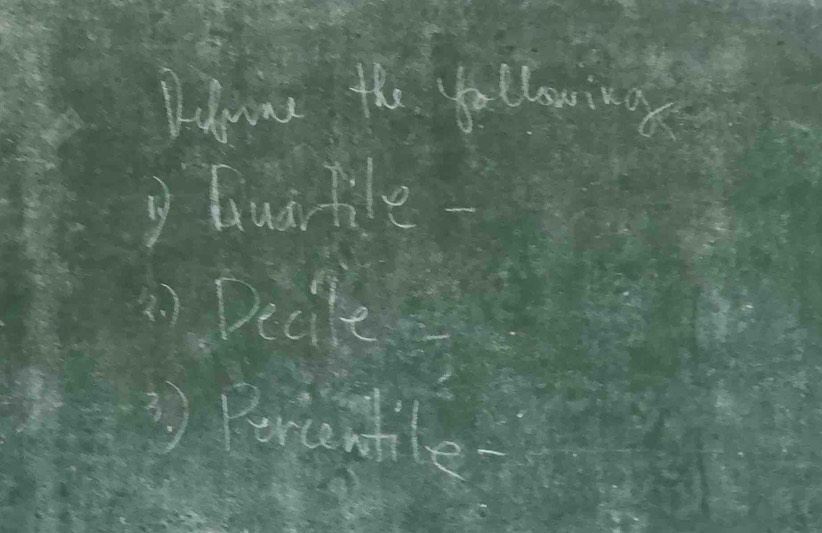 Define the following
1) Quartile -
2.) Decile -
3.) Percentile -